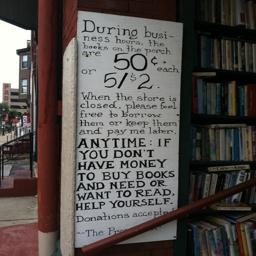 During busi-
ness hours, the
books on the porch
are 50¢ each
or 5/$2.
When the store is
closed, please feel
free to borrow
them or keep them
and pay me later.
ANYTIME: IF
YOU DON'T
HAVE MONEY
TO BUY BOOKS
AND NEED OR
WANT TO READ,
HELP YOURSELF.
Donations accepted
--The